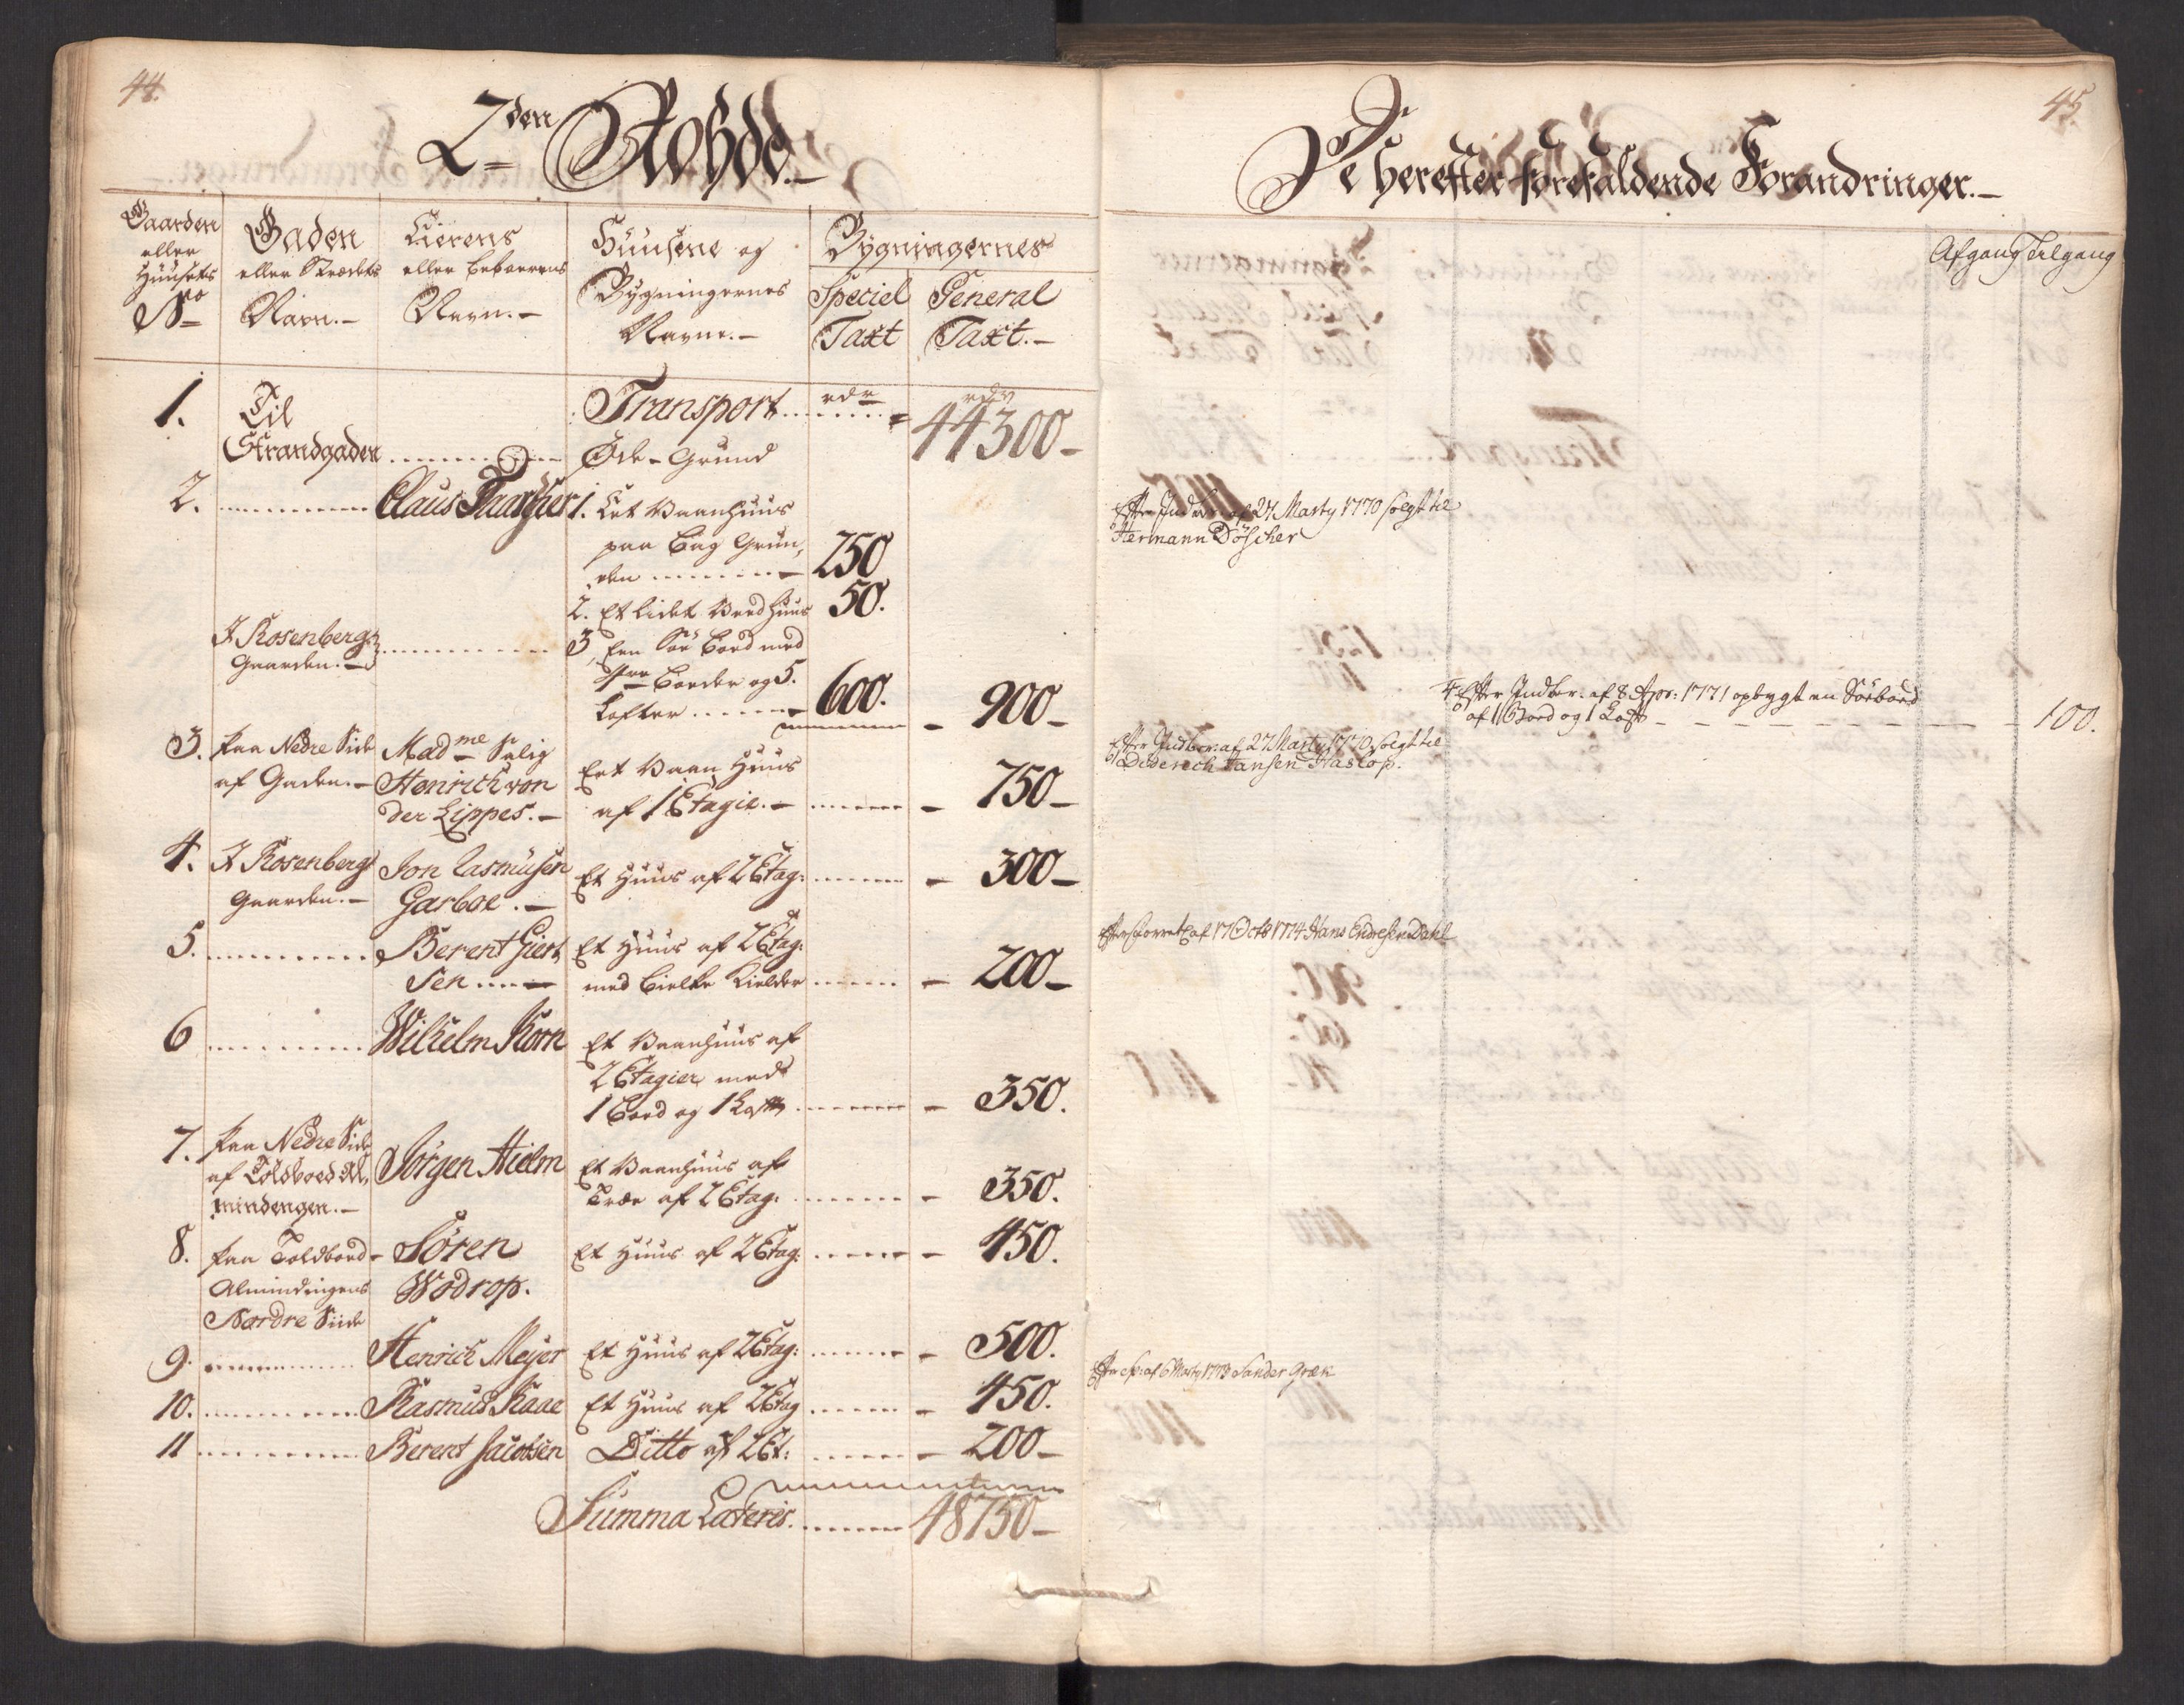 44.
2den Rohde.
Gaarden eller Huusets No
Gaden eller Strædets Navn.
Eierens eller Beboerens Navn.
Huusene og Bygningernes Navne.
Bygningernes
Speciel Taxt
General Taxt.
1. Til Transport rdr rdr 44300
Strandgaden Öde-Grund
2. Claus Faascher 1. Eet Vaanhuus
paa Bag Grun-
den 250
2. Et lidet Vedhuus 50.
J Rosenbergs 3 Een Söe Boed med
Gaarden.
Boeder og 5.
Lofter 600. 900
3. paa Nedre Side Madme Salig
af Gaden. Henrich von Eet Vaan Huus
der Lippes. af 1 Etagie. 750
4. J Rosenbergs Jon Rasmusen Et Huus af 2 Etag: 300
Gaarden. Garboe.
5. Berent Giert Et Huus af 2 Etag:
sen med Bielke Kielder 200
6 Wilhelm Korn Et Vaanhuus af
2 Etagier med
1 Boed og 1 Loft 350.
7. paa Nedre Side
af Toldboed Al- Jörgen Hielm Et Vaanhuus af
mindengen. Træe af 2 Etag: 350.
8. paa Toldboed- Sören Et Huus af 2 Etag: 450.
Almindingens Wodrop.
Nordre Siide
9. Henrich Meyer Et Huus af 2 Etag: 500.
10. Rasmus Kaae Et Huus af 2 Etag 450.
11 Berent Jacobsen Ditto af 2 Et: 200
Summa Lateris. 48750
45.
De herefter forefaldende Forandringer.
Afgang Tilgang
Efter Indber: af 27 Marty 1770 solgt til
Hermann Döscher
4 Efter Indber: af 8 Apr: 1771 opbygt en Söeboed
af 1 Boed og 1 Loft 100.
Efter Indber: af 27 Marty 1770 solgt til
Diderich Jansen Haslop.
af 17 Octb 1774 Hans Endresen Dahl
Efter af 6 Marty 1773 Sander Græn